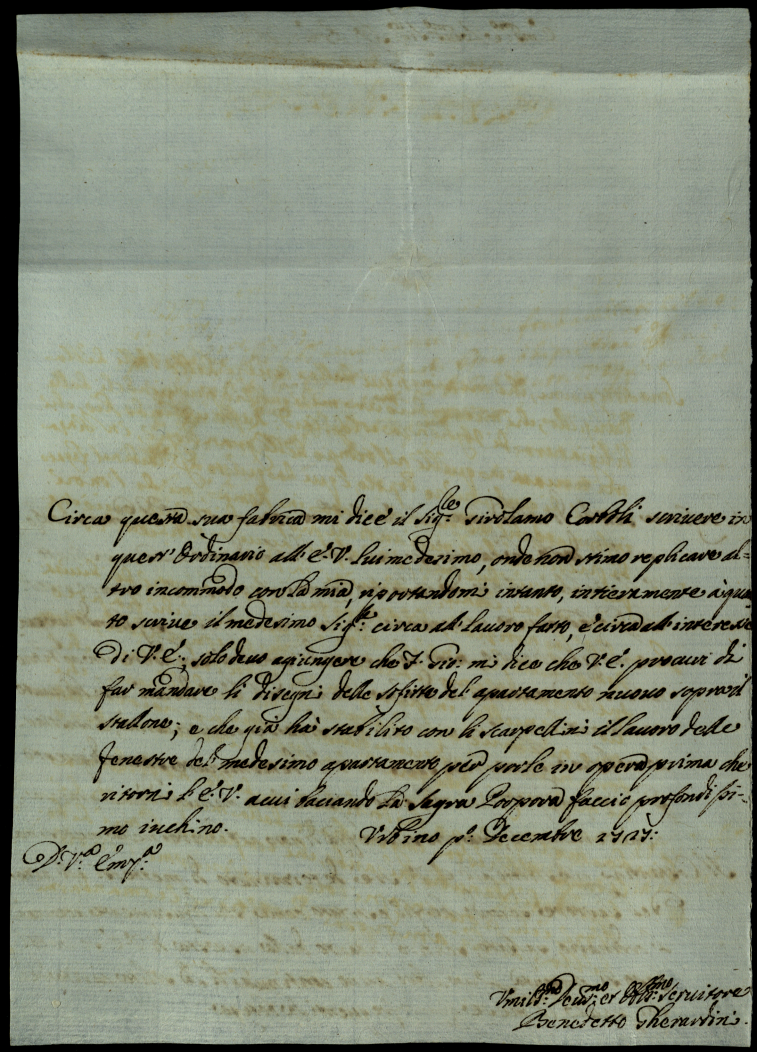 Circa questa sua fabrica mi dice il Sig.re Girolamo scrivere in
quest'Ordinario all'E. V. lui medesimo, onde non stimo replicare al=
tro incommodo con la mia, riportandomi intanto, intieramente à quan
to scrive il medesimo Sig.re circa al lavoro fatto, e circa all'interesse
Di V. E., solo devo agiungere che S. Gir: mi dice che V. E. procuri di
far mandare li disegni delle soffitte del apartamento nuovo sopra il
stallone; e che già hà stabilito con li scarpellini il lavoro delle
fenestre del medesimo apartamento per porle in opera prima che
ritorni l'E. V. a cui baciando la Sagra Porpora faccio profondissi-
mo inchino. Urbino p.º Decembre
D. V.ra Em.za
Umil.mo Dev.mo et Obb.mo Servitore
Benedetto Gherardini.